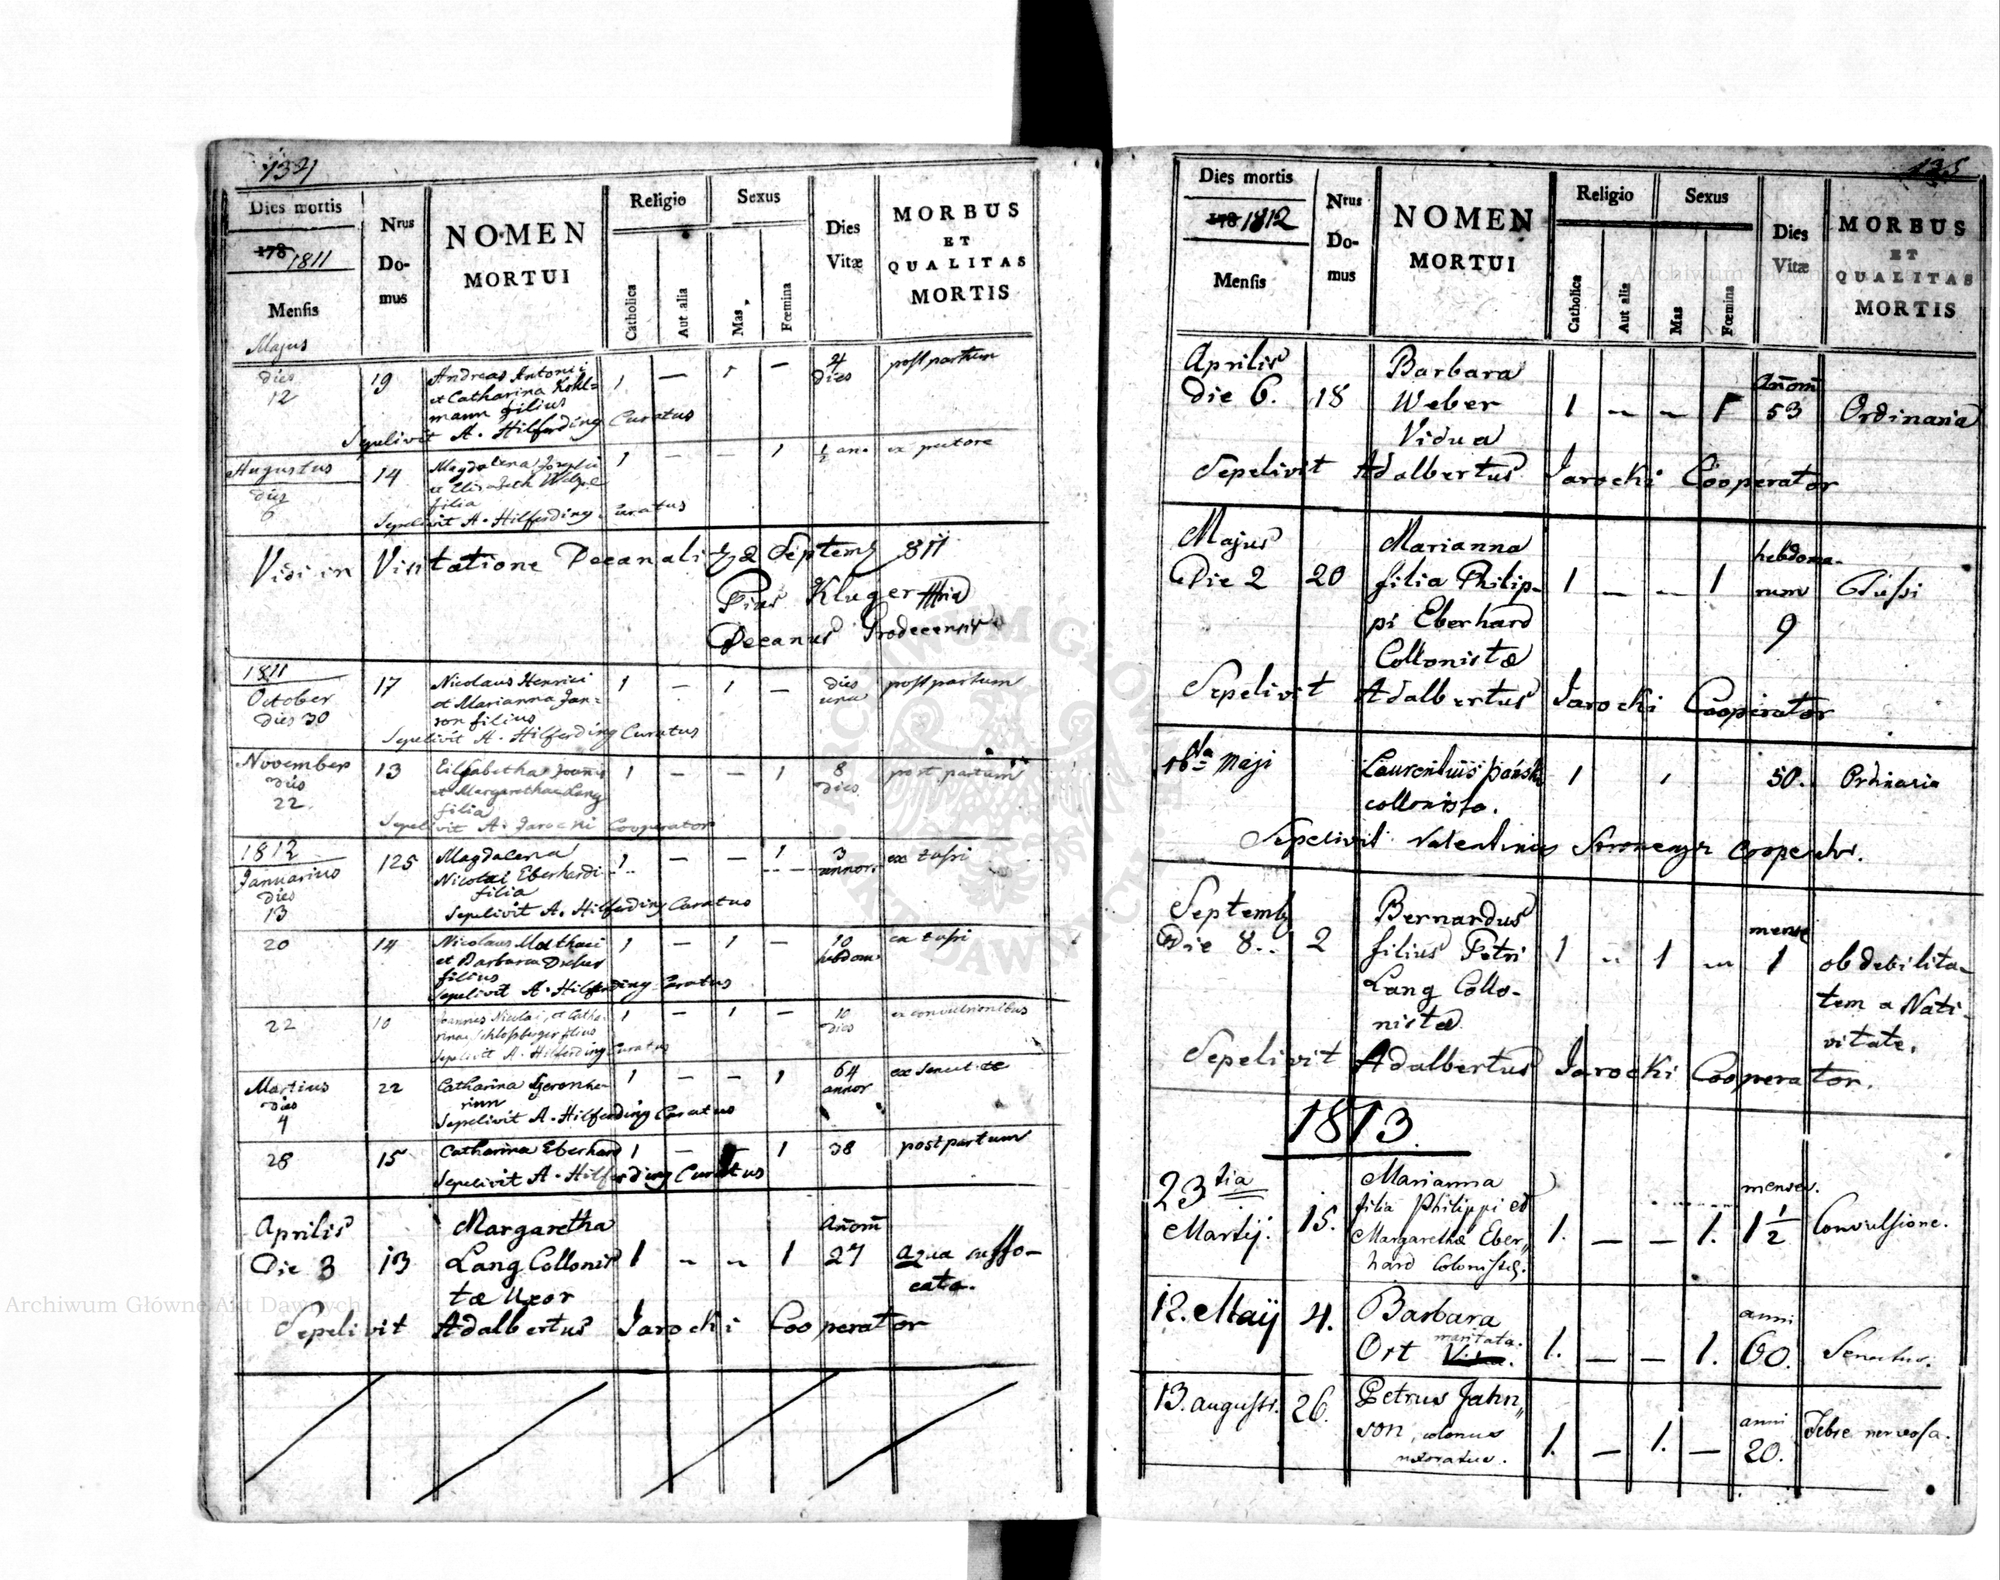 134
Dies mortis
178 1811
Mensis
Nrus
Do-
mus
NOMEN
MORTUI
Religio
Catholica
Aut alia
Sexus
Mas
Fœmina
Dies
Vitæ
MORBUS
ET
QUALITAS
MORTIS
Majus
dies
12
19
Andreas Antonii
et Catharina Kohl=
mann filius
1 — 1 —
4
dies
post partum
Sepelivit A. Hilferding Curatus
Augustus
dies
6
14
Magdalena Josephi
et Elisabeth
filia
1 — — 1
1/2 an.
ex pectore
Sepelivit A. Hilferding Curatus
Vidi in Visitatione Decanali Septemb 811
Pius Kluger
Decanus Grodecensis
1811
October
dies 30
17
Nicolaus Henrici
et Marianna Jan=
son filius
1 — 1 —
dies
una
post partum
Sepelivit A. Hilferding Curatus
November
dies
22.
13
Elisabetha Joannis
et Margarethae Lang
filia
1 — — 1
8
dies
post partum
Sepelivit A. Jarocki Cooperator
1812
Januarius
dies
13
125
Magdalena
Nicolai Eberhardi
filia
1 — — 1
3
annor.
ex tussi
Sepelivit A. Hilferding Curatus
20
14
Nicolaus Mathaei
et Barbara
filius
1 — 1 —
10
hebdom.
ex tussi
Sepelivit A. Hilferding Curatus
22
10
Joannes Nicolai, et Catha-
rinae Schlossberger filius
1 — 1 —
10
dies
ex convulsionibus
Sepelivit A. Hilferding Curatus
Martius
dies
4
22
Catharina
1 — — 1
64
annor
ex senectute
Sepelivit A. Hilferding Curatus
28
15
Catharina Eberhard
1 — — 1
38
post partum
Sepelivit A. Hilferding Curatus
Aprilis
Die 3
13
Margaretha
Lang Collonis
tæ Uxor
1 1
Añom
27
aqua suffo-
cata.
Sepelivit Adalbertus Jarocki Cooperator
135
Dies mortis
178 1812
Mensis
Nrus
Do-
mus
NOMEN
MORTUI
Religio
Catholica
Aut alia
Sexus
Mas
Fœmina
Dies
Vitæ
MORBUS
ET
QUALITAS
MORTIS
Aprilis
Die 6.
18
Barbara
Weber
Vidua
1 — — 1
Añom
53
Ordinaria
Sepelivit Adalbertus Jarocki Cooperator
Majus
Die 2
20
Marianna
filia Philip-
pi Eberhard
Collonistæ
1 — — 1
hebdoma-
rum
9
Tussi
Sepelivit Adalbertus Jarocki Cooperator
16ta Maji
Laurentius
collonista.
1 1
50.
Ordinaria
Sepelivit Valentinus Cooperator.
Septemb
Die 8.
2
Bernardus
filius Petri
Lang Collo-
nistæ
1 1
mense
1
ob debilita-
tem a Nati-
vitate.
Sepelivit Adalbertus Jarocki Cooperator.
1813.
23tia
Martij.
15.
Marianna
filia Philippi et
Margarethæ Eber„
hard Colonistæ.
1. — — 1.
menses.
1 1/2
Convulsione.
12. Maÿ
4.
Barbara
Ort maritata.
1. — — 1.
anni
60.
Senectus.
13. augusti.
26.
Petrus Jahn„
son, colonus
uxoratus.
1. — 1. —
anni
20.
Febre nervosa.
Archiwum Główne Akt Dawnych